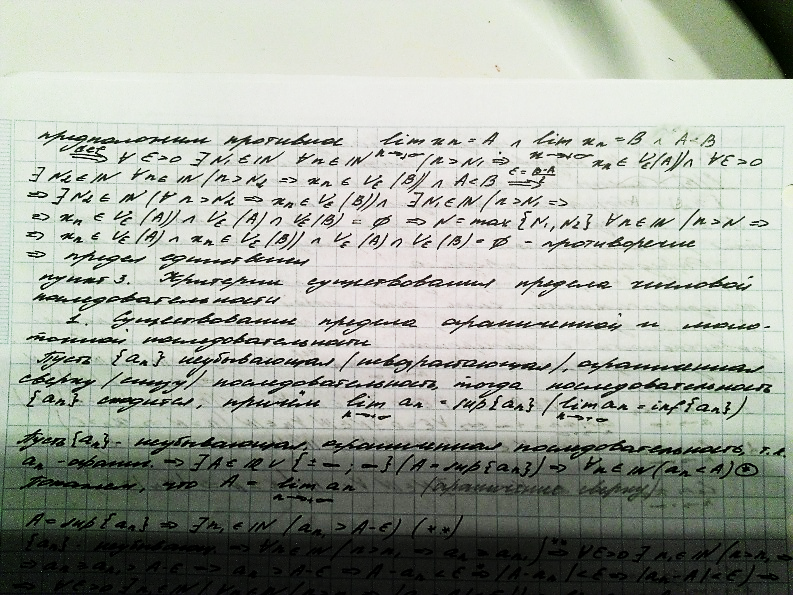 предположим противное lim xn = A ∧ lim xn = B ∧ A<B
∀ε>0 ∃N₁∈ℕ ∀n∈ℕ (n>N₁ ⇒ xn ∈ Vε(A)) ∧ ∀ε>0
∃N₂∈ℕ ∀n∈ℕ (n>N₂ ⇒ xn ∈ Vε(B)) ∧ A<B ⇒
⇒ ∃N₂∈ℕ (∀n>N₂ ⇒ xn ∈ Vε(B)) ∧ ∃N₁∈ℕ (n>N₁ ⇒
⇒ xn ∈ Vε(A)) ∧ Vε(A) ∩ Vε(B) = ∅ ⇒ N = max{N₁,N₂} ∀n∈ℕ (n>N ⇒
⇒ xn ∈ Vε(A) ∧ xn ∈ Vε(B)) ∧ Vε(A) ∩ Vε(B) = ∅ - противоречие
⇒ предел единственен
пункт 3. Критерии существования предела числовой
последовательности
1. Существование предела ограниченной и моно-
тонной последовательности
Пусть {an} неубывающая (невозрастающая), ограниченная
сверху (снизу) последовательность, тогда последовательность
{an} сходится, причём lim an = sup{an} (lim an = inf{an})
n→∞ n→∞
Пусть {an} - неубывающая, ограниченная последовательность, т.к.
an - огранич. ⇒ ∃A∈ℝ (A = sup{an}) ⇒ ∀n∈ℕ (an ≤ A)
Покажем, что A = lim an
n→∞
A = sup{an} ⇒ ∃n₁∈ℕ (an₁ > A-ε) (**)
{an} - неубывающ. ⇒ ∀n∈ℕ (n>n₁ ⇒ an ≥ an₁) ⇒ ∀ε>0 ∃n₁∈ℕ (n>n₁ ⇒
⇒ an ≥ an₁ > A-ε ⇒ an > A-ε ⇒ A-an < ε ⇒ |A-an| < ε ⇒ |an-A| < ε) ⇒